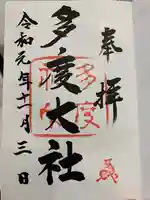 奉拝
多度大社
令和元年十一月三日